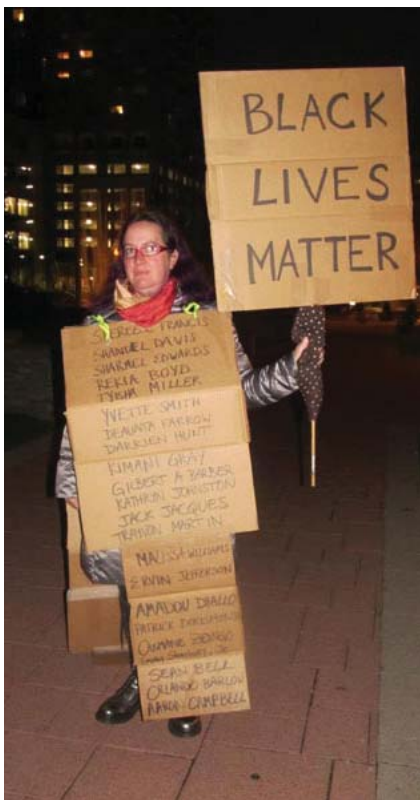 BLACK
LIVES
MATTER
SHEREESE FRANCIS
SHANUEL DAVIS
SHARMEL EDWARDS
REKIA BOYD
TYISHA MILLER
YVETTE SMITH
DEAUNTA FARROW
DARRIEN HUNT
KIMANI GRAY
GILBERT A BARBER
KATHRYN JOHNSTON
JACK JACQUES
TRAYVON MARTIN
MALISSA WILLIAMS
ERVIN JEFFERSON
AMADOU DIALLO
PATRICK DORISMOND
OUMANE ZONGO
SEAN BELL
ORLANDO BARLOW
AARON CAMPBELL